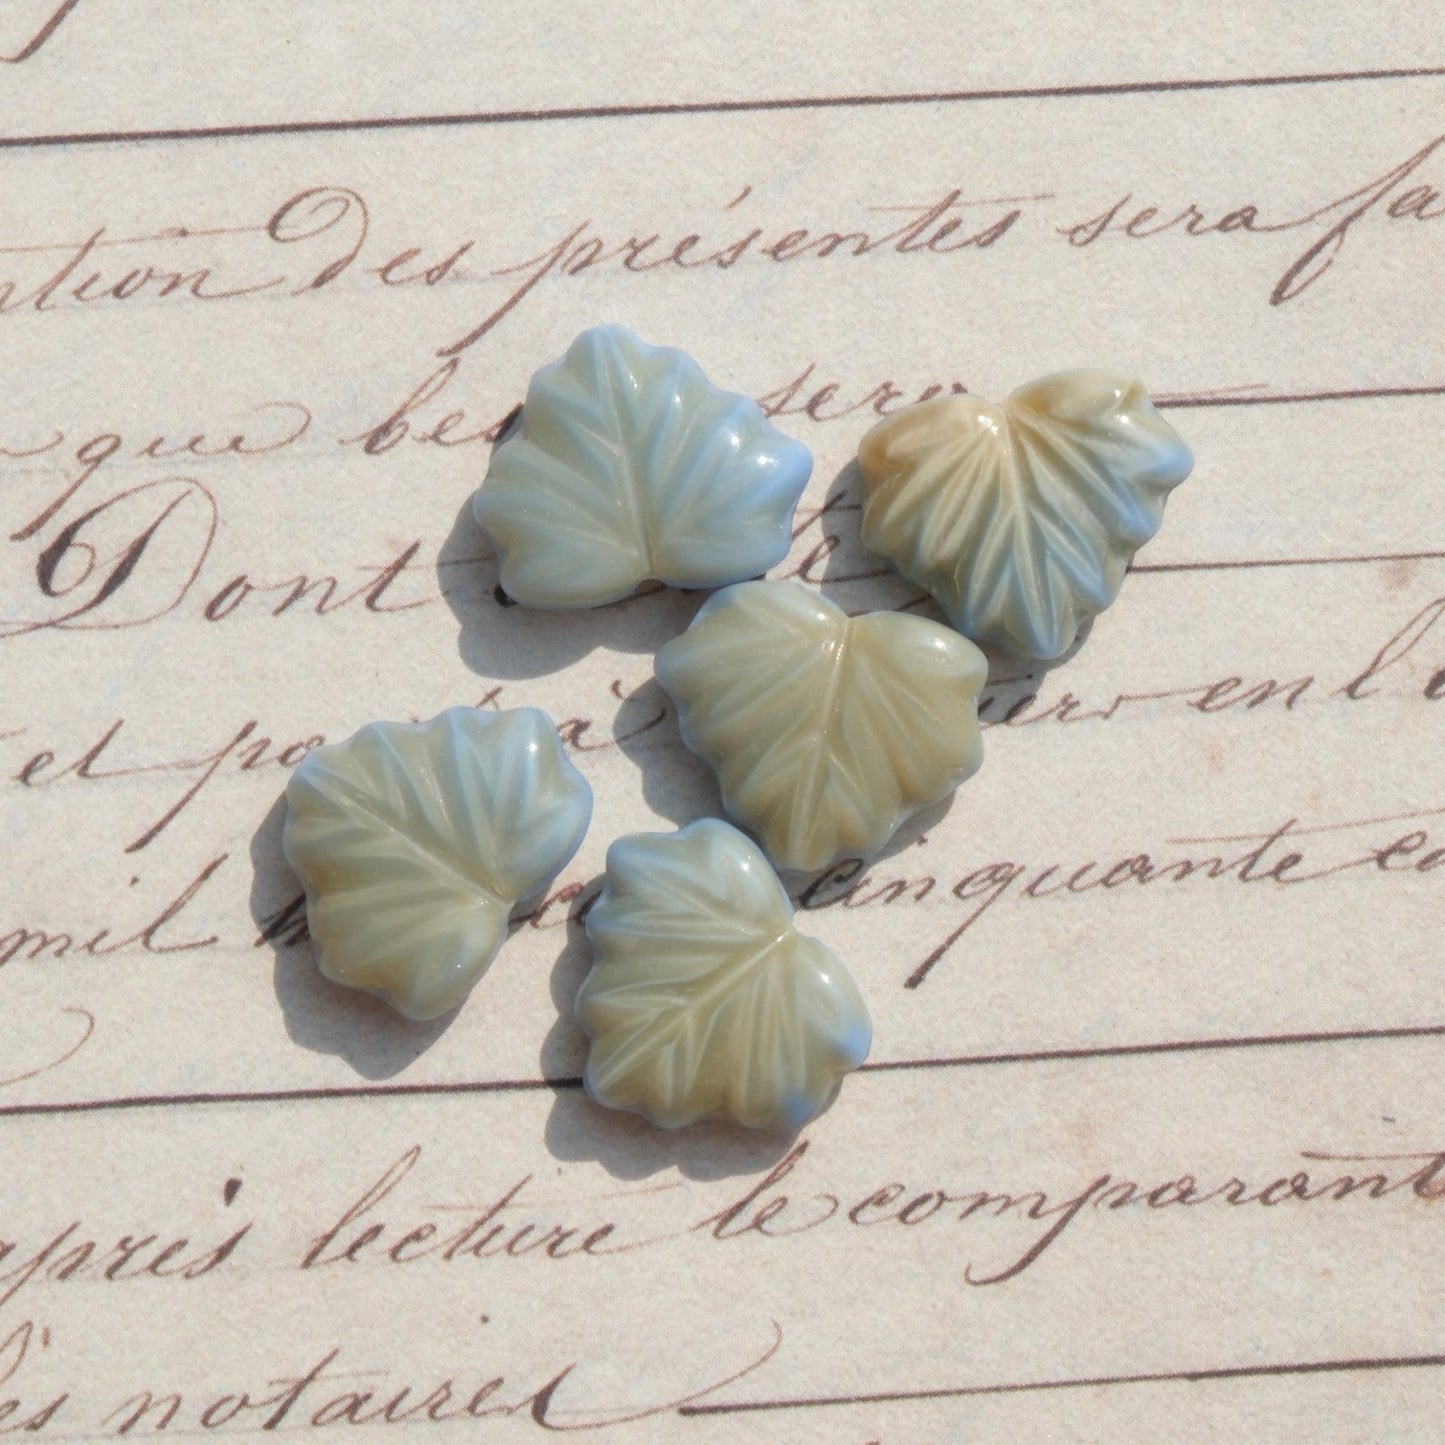 ntion des présentes sera fa
que bes sero
Dont
et en l
mil cinquante ce
après lecture le comparant
les notaires